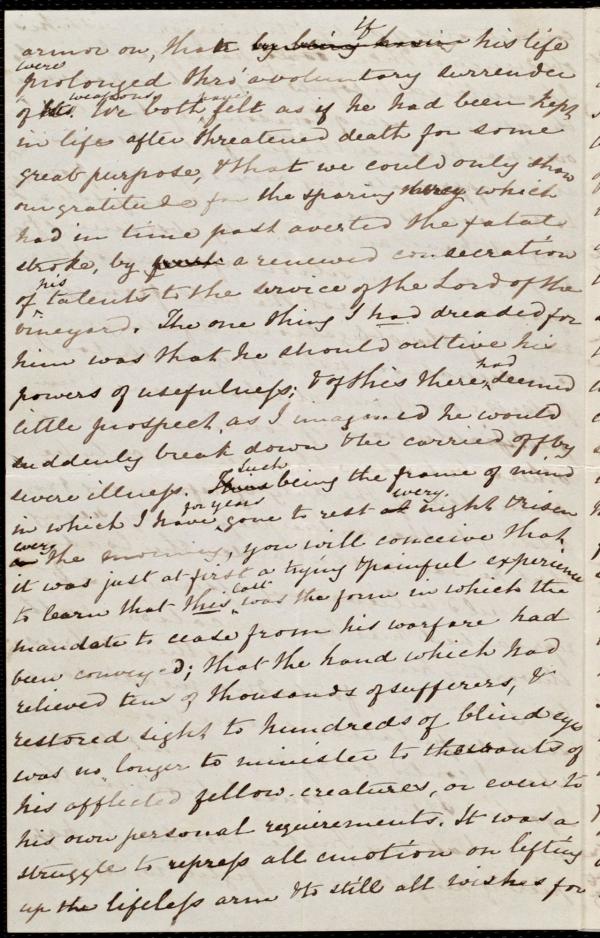 armor on, than by being his life
if
were
prolonged thro' a voluntary surrender
of his weapons. We both have felt as if he had been kept
in life after threatened death for some
great purpose, & that we could only show
our gratitude for the sparing mercy which
had in time past averted the fatal
stroke, by a renewed consecration
of his talents to the service of the Lord of the
vineyard. The one thing I had dreaded for
him was that he should outlive his
powers of usefulness; & of this there had seemed
little prospect, as I imagined he would
suddenly break down & be carried off by
severe illness. Such being the frame of mind
in which I have for years gone to rest every night & risen
every morning, you will conceive that
it was just at first a trying & painful experience
to learn that this call was the form in which the
mandate to cease from his warfare had
been conveyed; that the hand which had
relieved tens of thousands of sufferers, &
restored sight to hundreds of blind eyes
was no longer to minister to the wants of
his afflicted fellow-creatures, or even to
his own personal requirements. It was a
struggle to repress all emotion on lifting
up the lifeless arm & to still all wishes for